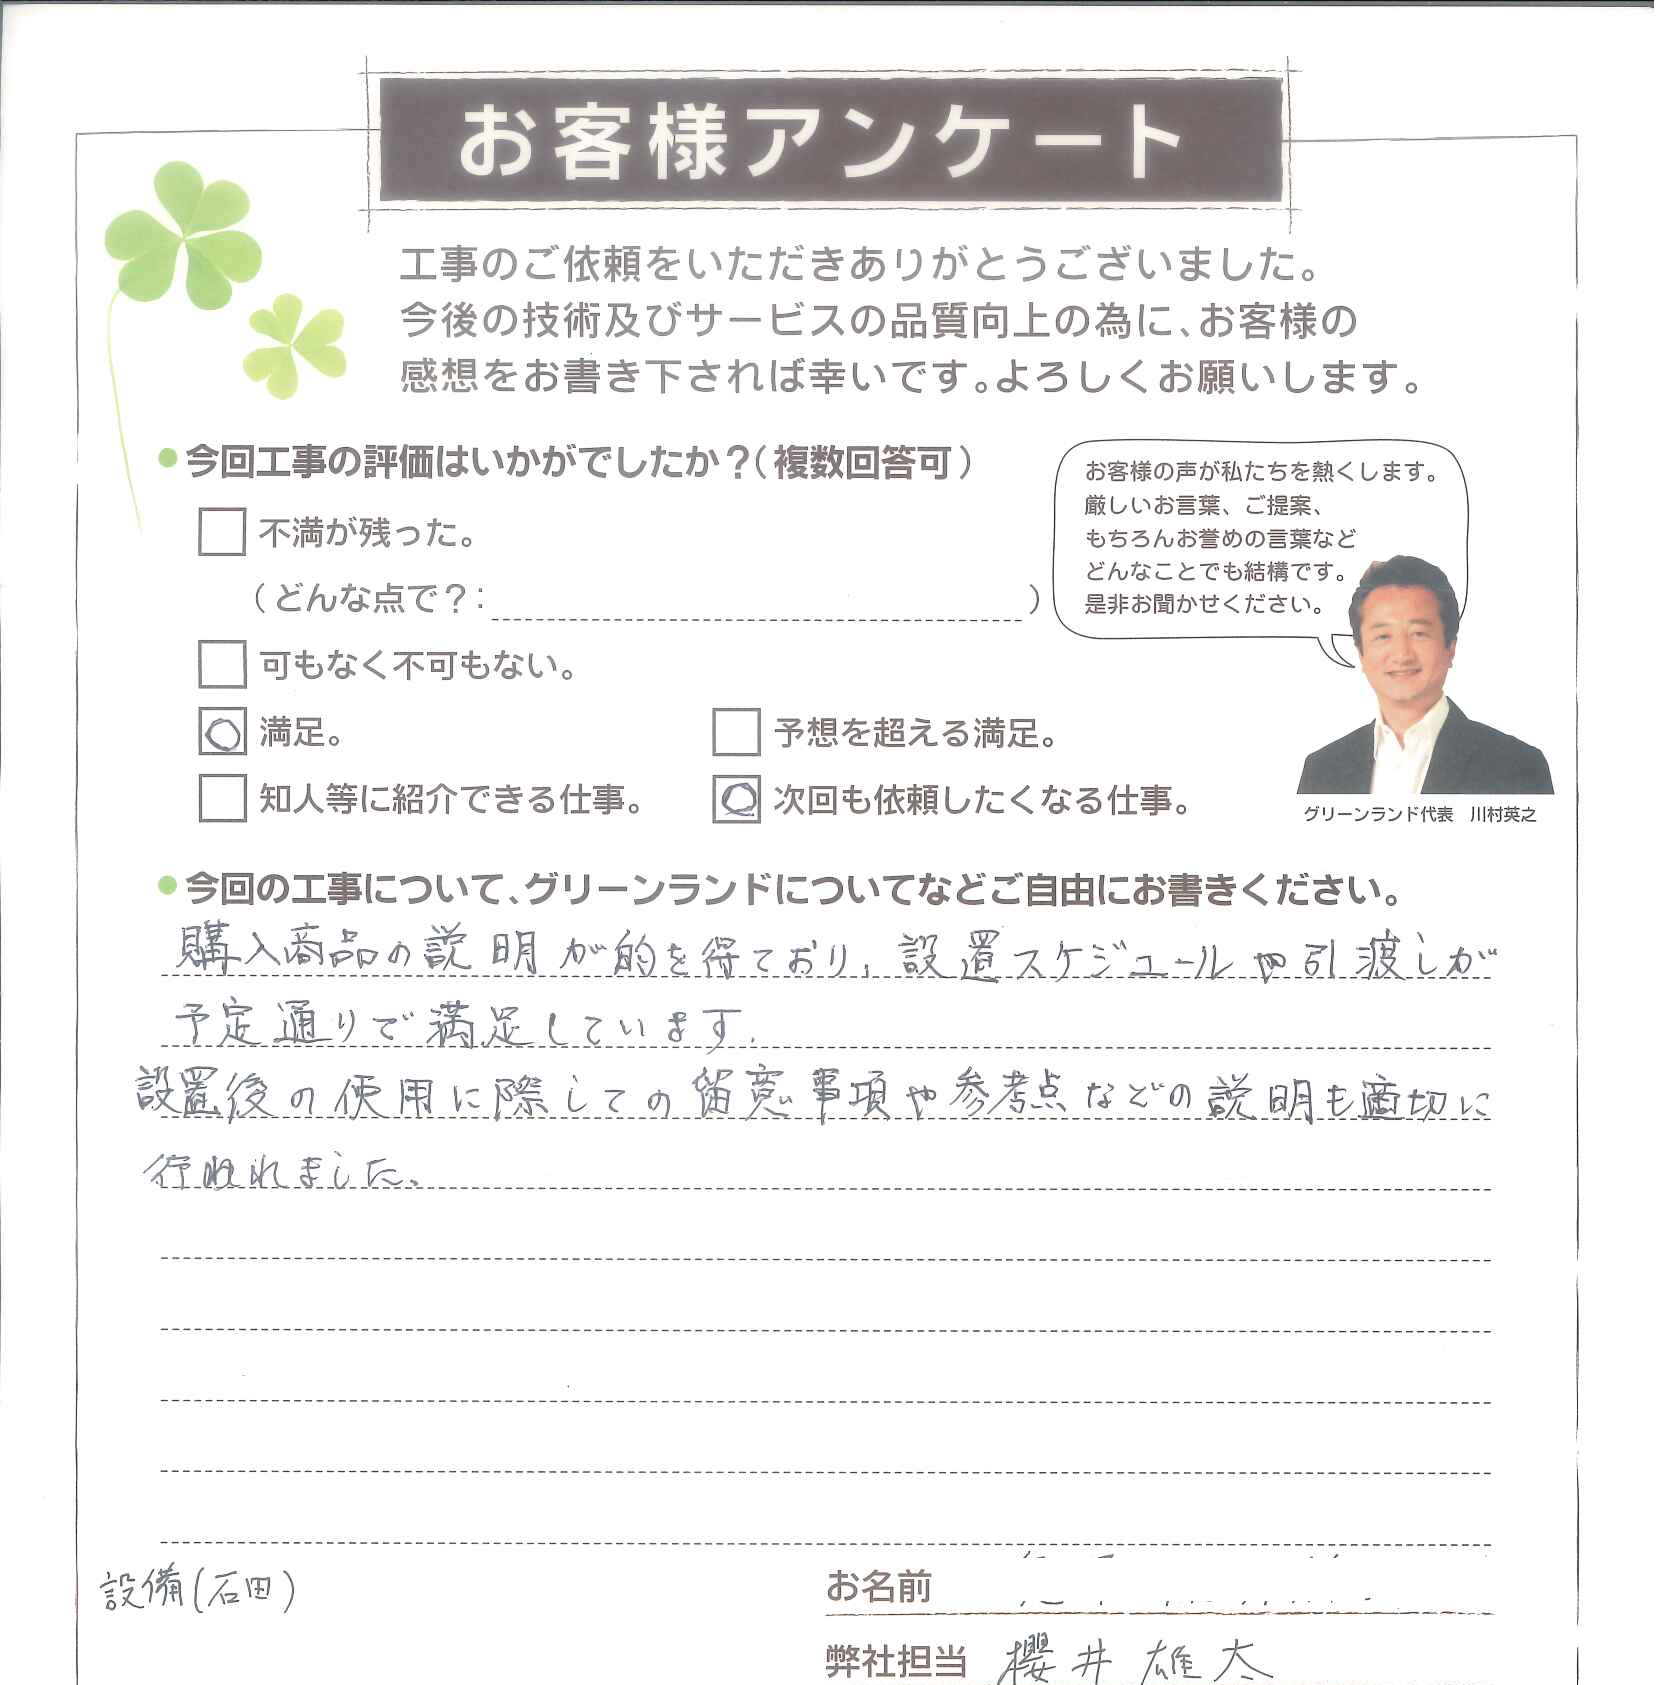 お客様アンケート
工事のご依頼をいただきありがとうございました。
今後の技術及びサービスの品質向上の為に、お客様の
感想をお書き下されば幸いです。よろしくお願いします。
●今回工事の評価はいかがでしたか？（複数回答可）
不満が残った。
（どんな点で？：　）
可もなく不可もない。
○ 満足。
予想を超える満足。
知人等に紹介できる仕事。
○ 次回も依頼したくなる仕事。
お客様の声が私たちを熱くします。
厳しいお言葉、ご提案、
もちろんお誉めの言葉など
どんなことでも結構です。
是非お聞かせください。
グリーンランド代表　川村英之
●今回の工事について、グリーンランドについてなどご自由にお書きください。
購入商品の説明が的を得ており、設置スケジュールや引渡しが
予定通りで満足しています。
設置後の使用に際しての留意事項や参考点などの説明も適切に
行われました。
設備(石田)
お名前
弊社担当　櫻井雄太